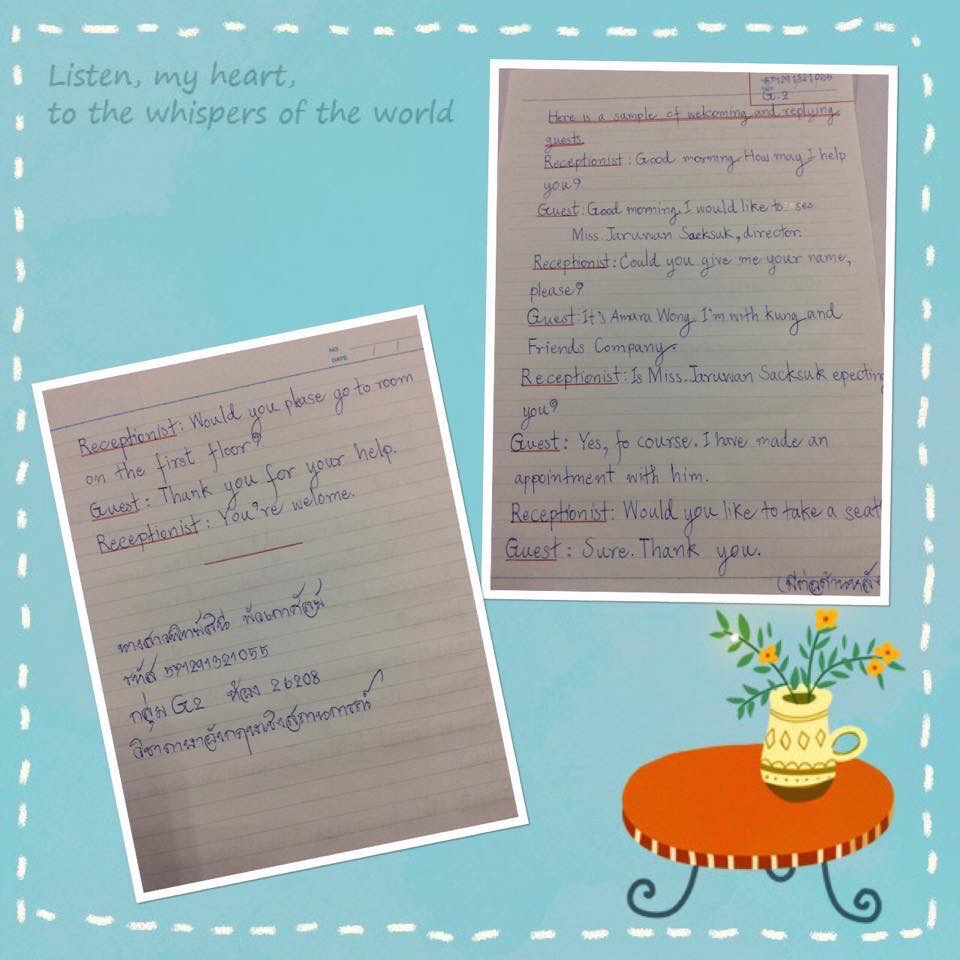 Listen, my heart,
to the whispers of the world
G.2
Here is a sample of welcoming and replying
guests.
Receptionist: Good morning. How may I help
you?
Guest: Good morning. I would like to see
Miss Jaruwan Sacksuk, director.
Receptionist: Could you give me your name,
please?
Guest: It's Amara Wong. I'm with Kung and
Friends Company.
Receptionist: Is Miss.Jaruwan Sacksuk epecting
you?
Guest: Yes, fo course. I have made an
appointment with him.
Receptionist: Would you like to take a seat
Guest: Sure. Thank you.
(มีต่อด้านหลัง
NO.
DATE / /
Receptionist: Would you please go to room
on the first floor?
Guest: Thank you for your help.
Receptionist: You're welome.
นางสาว
รหัส 57121321055
กลุ่ม G2 ห้อง 26208
วิชาภาษาอังกฤษเชิงสถานการณ์